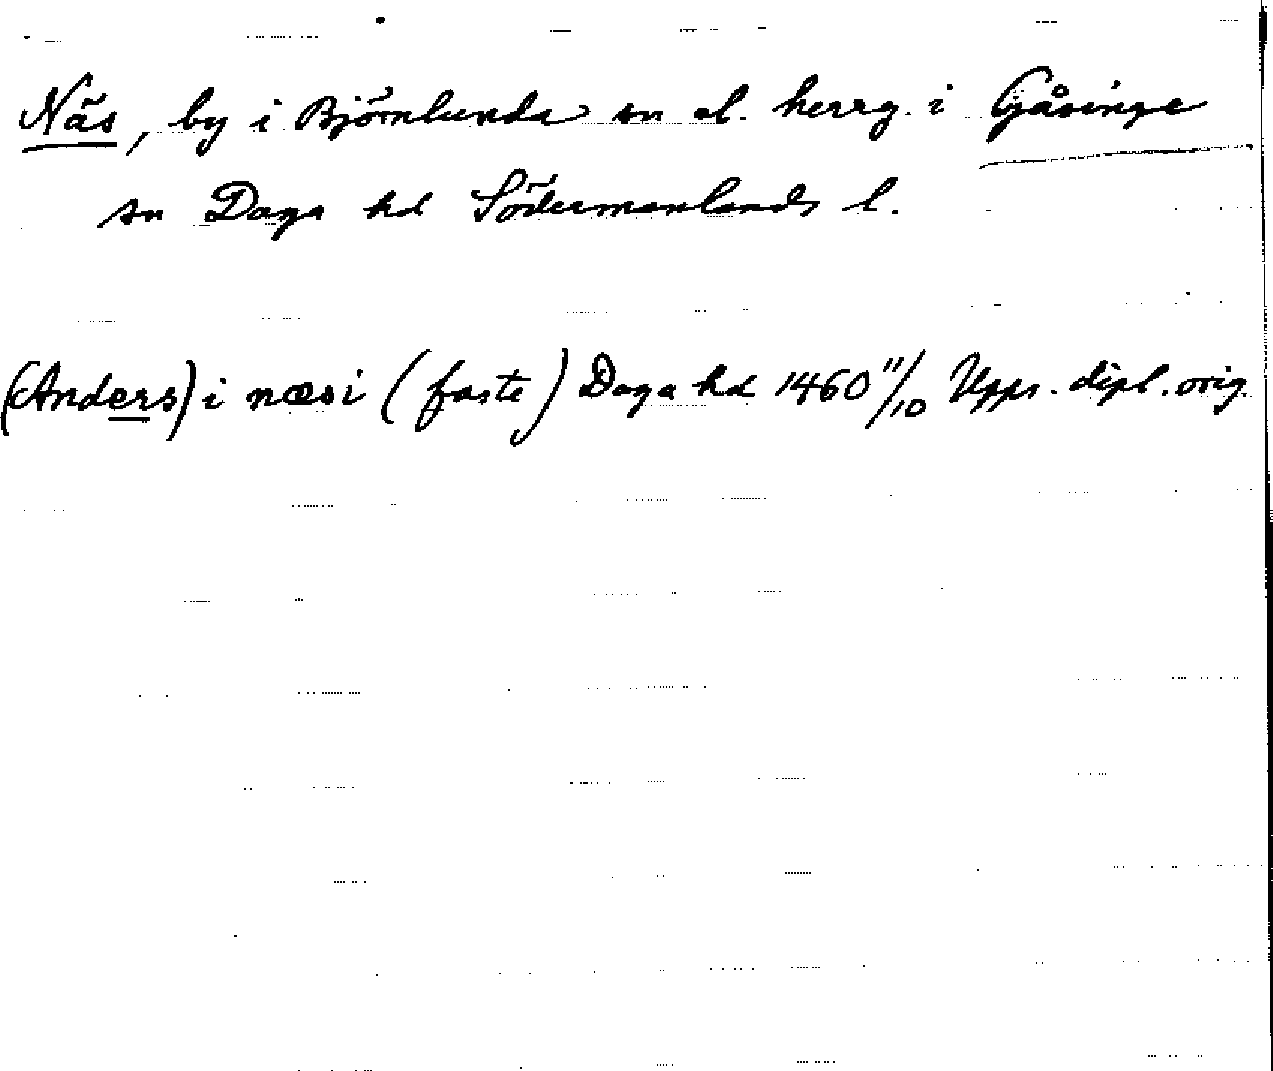 Näs, by i Björnlunda sn el. herrg. i Gåsinge
sn Daga hd Södermanlands l.
(Anders) i næsi (faste) Daga hd 1460 11/10 Upps. dipl. orig.